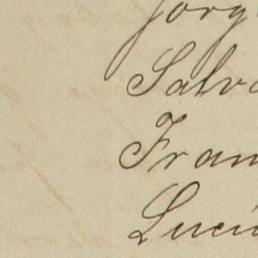 Jorg
Salva
Fran
Luci